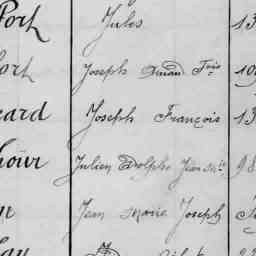 Port Jules 13
ort Joseph Amand F.ois 10
ard Joseph François 13
hour Julien Adolphe Jean M.ie 98
n Jean Marie Joseph